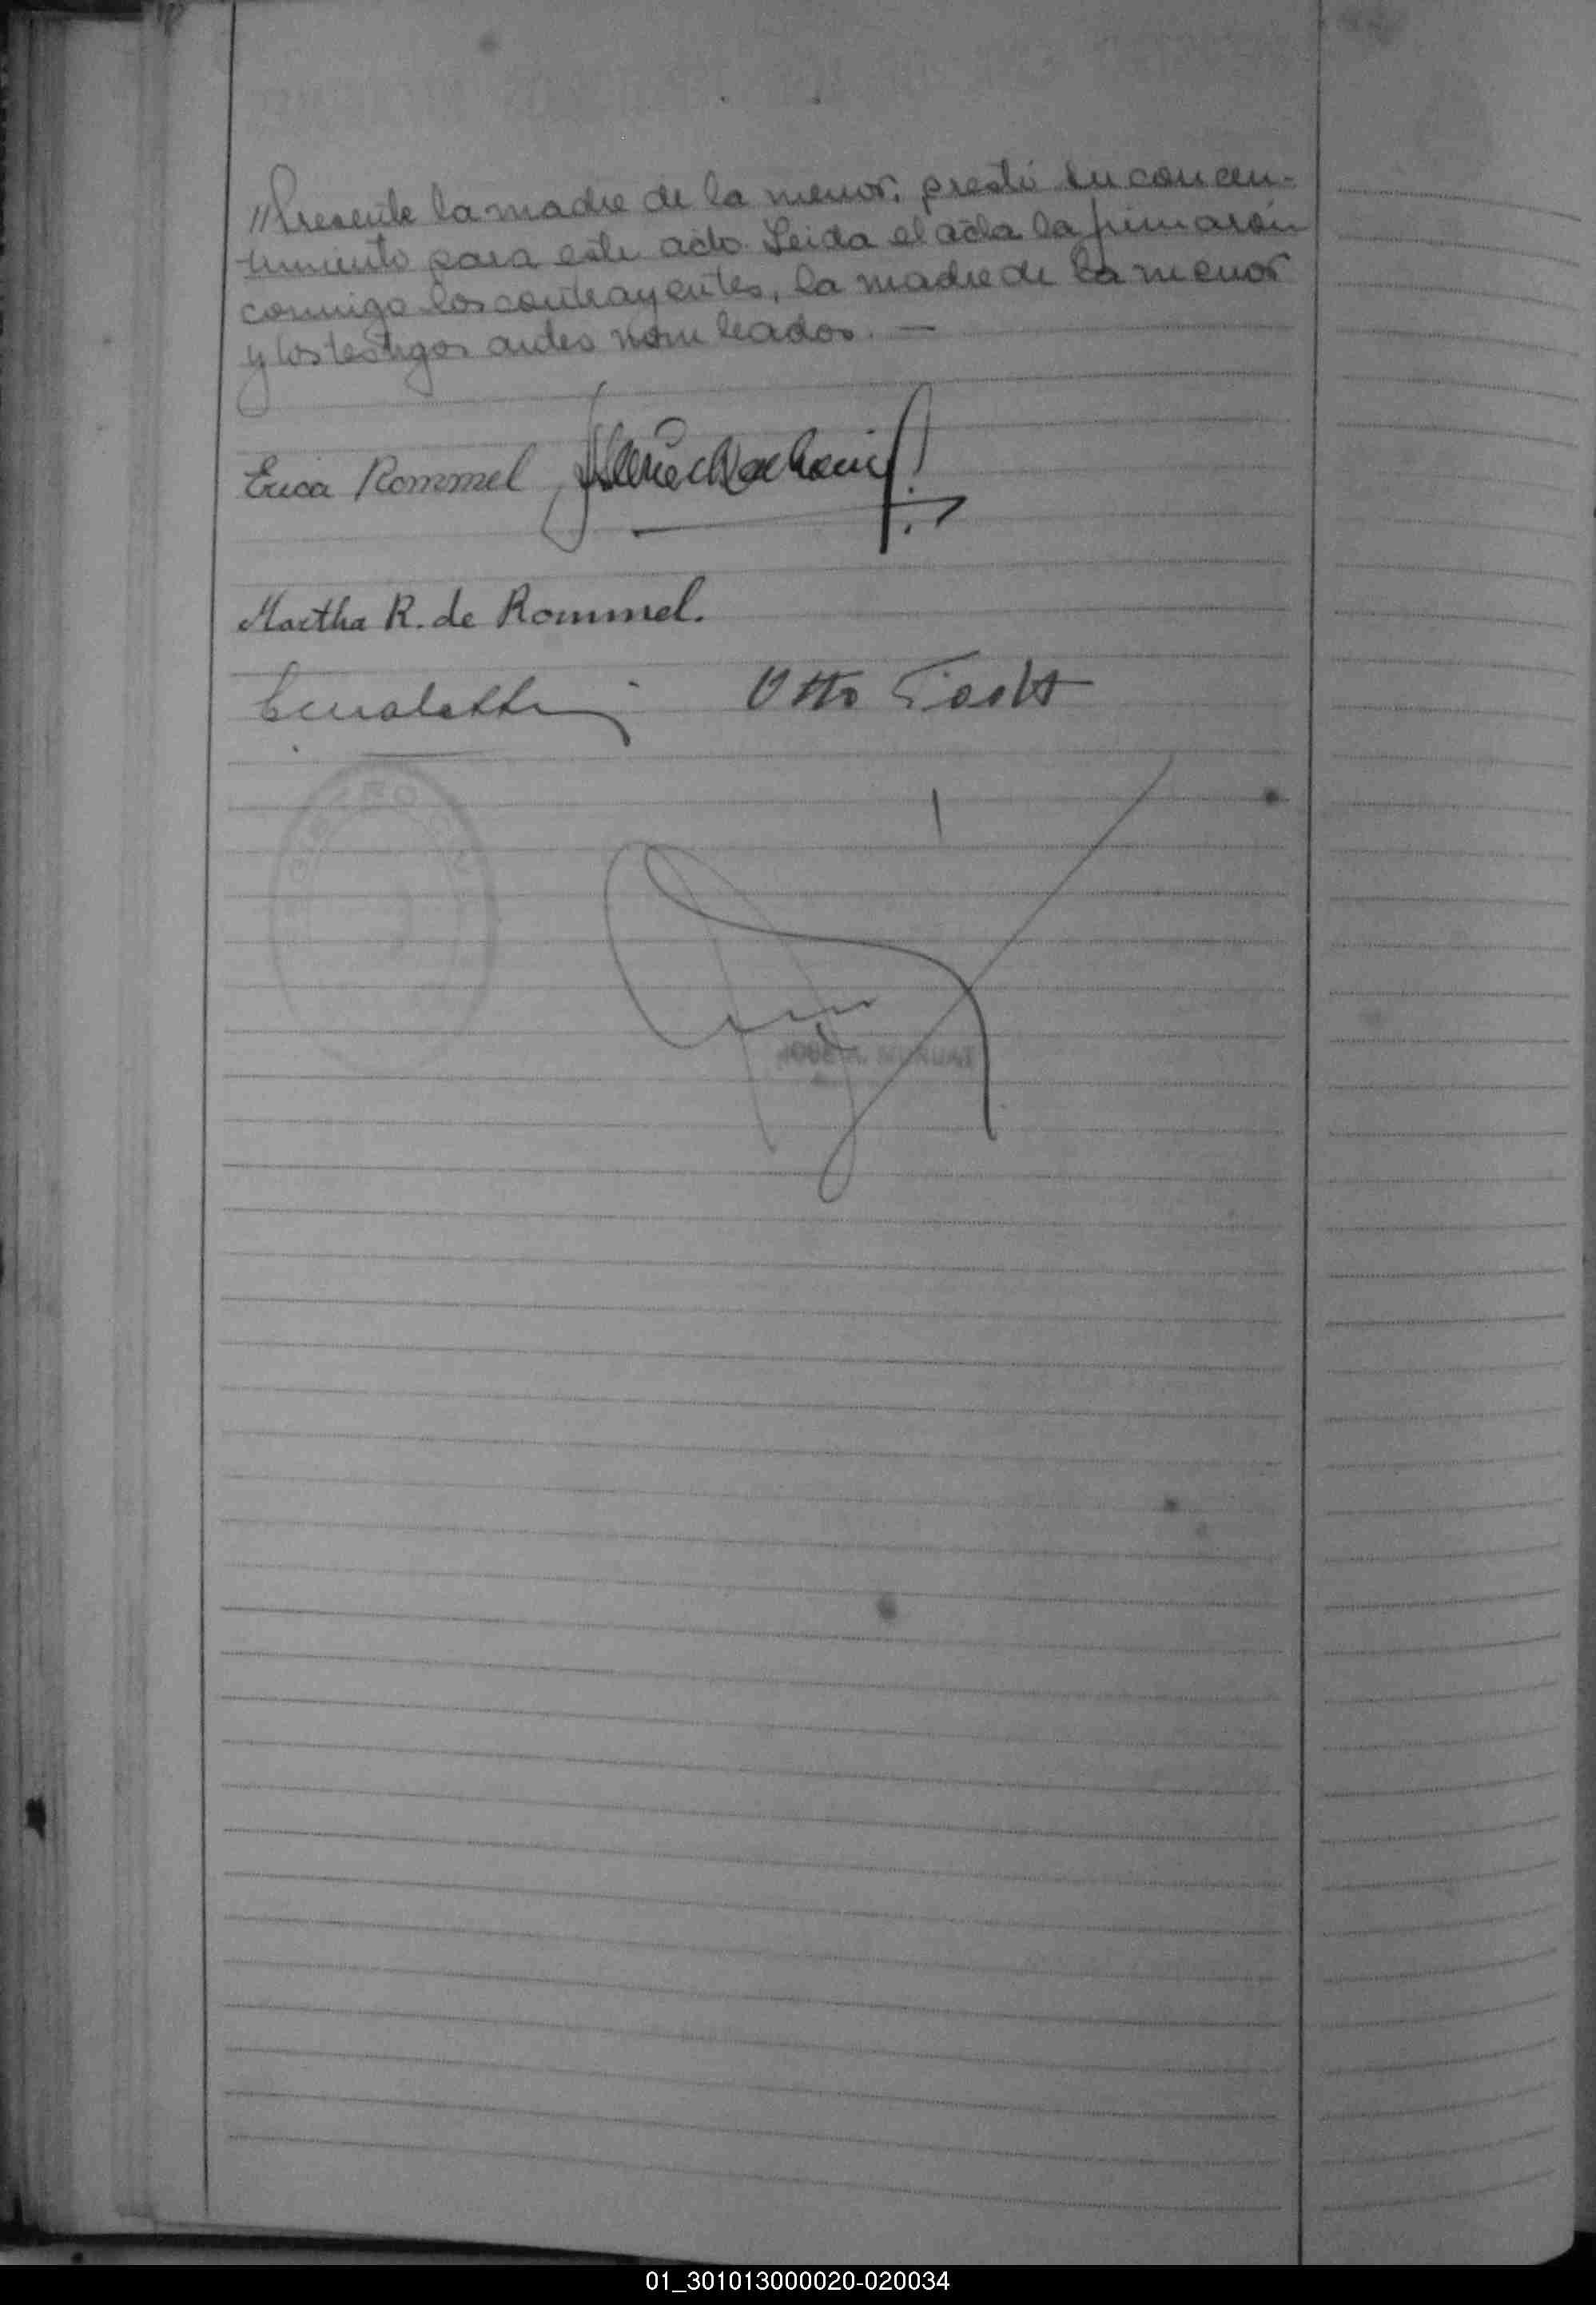 //Presente la madre de la menor, prestó su concen-
timiento para este acto. Leida el acta la firmarón
conmigo los contrayentes, la madre de la menor
y los testigos antes nombrados. —
Erica Rommel
Martha R. de Rommel.
Otto
REGISTRO CIVIL
JOSE A.
01_301013000020-020034